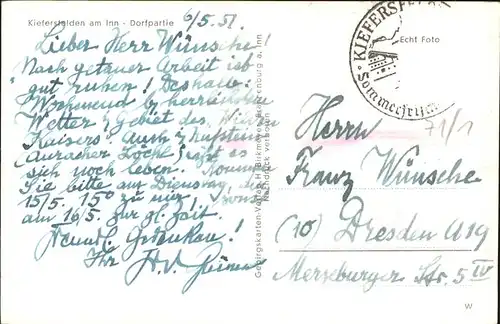 Kiefersfelden am Inn - Dorfpartie
6/5. 51.
Lieber Herr Wünsche!
Nach getaner Arbeit ist
gut ruhen! Deshalb
by herrlichstem
Wetter Gebiet des Wilden
Kaisers! Auch Kufstein
Auracher Löchl läßt es
sich noch leben. Kommen
Sie bitte am Dienstag, den
15/5. 15° zu mir, sonst
am 16/5. zur gl. Zeit.
Freundl. Gedenken!
Ihr H. V.
Gebirgskarten-Verlag H.
Nachdruck verboten
KIEFERSFELDEN
Sommerfrische
Echt Foto
71/1
Herrn
Franz Wünsche
(10) Dresden A 19
Merseburger Str. 5 IV
W